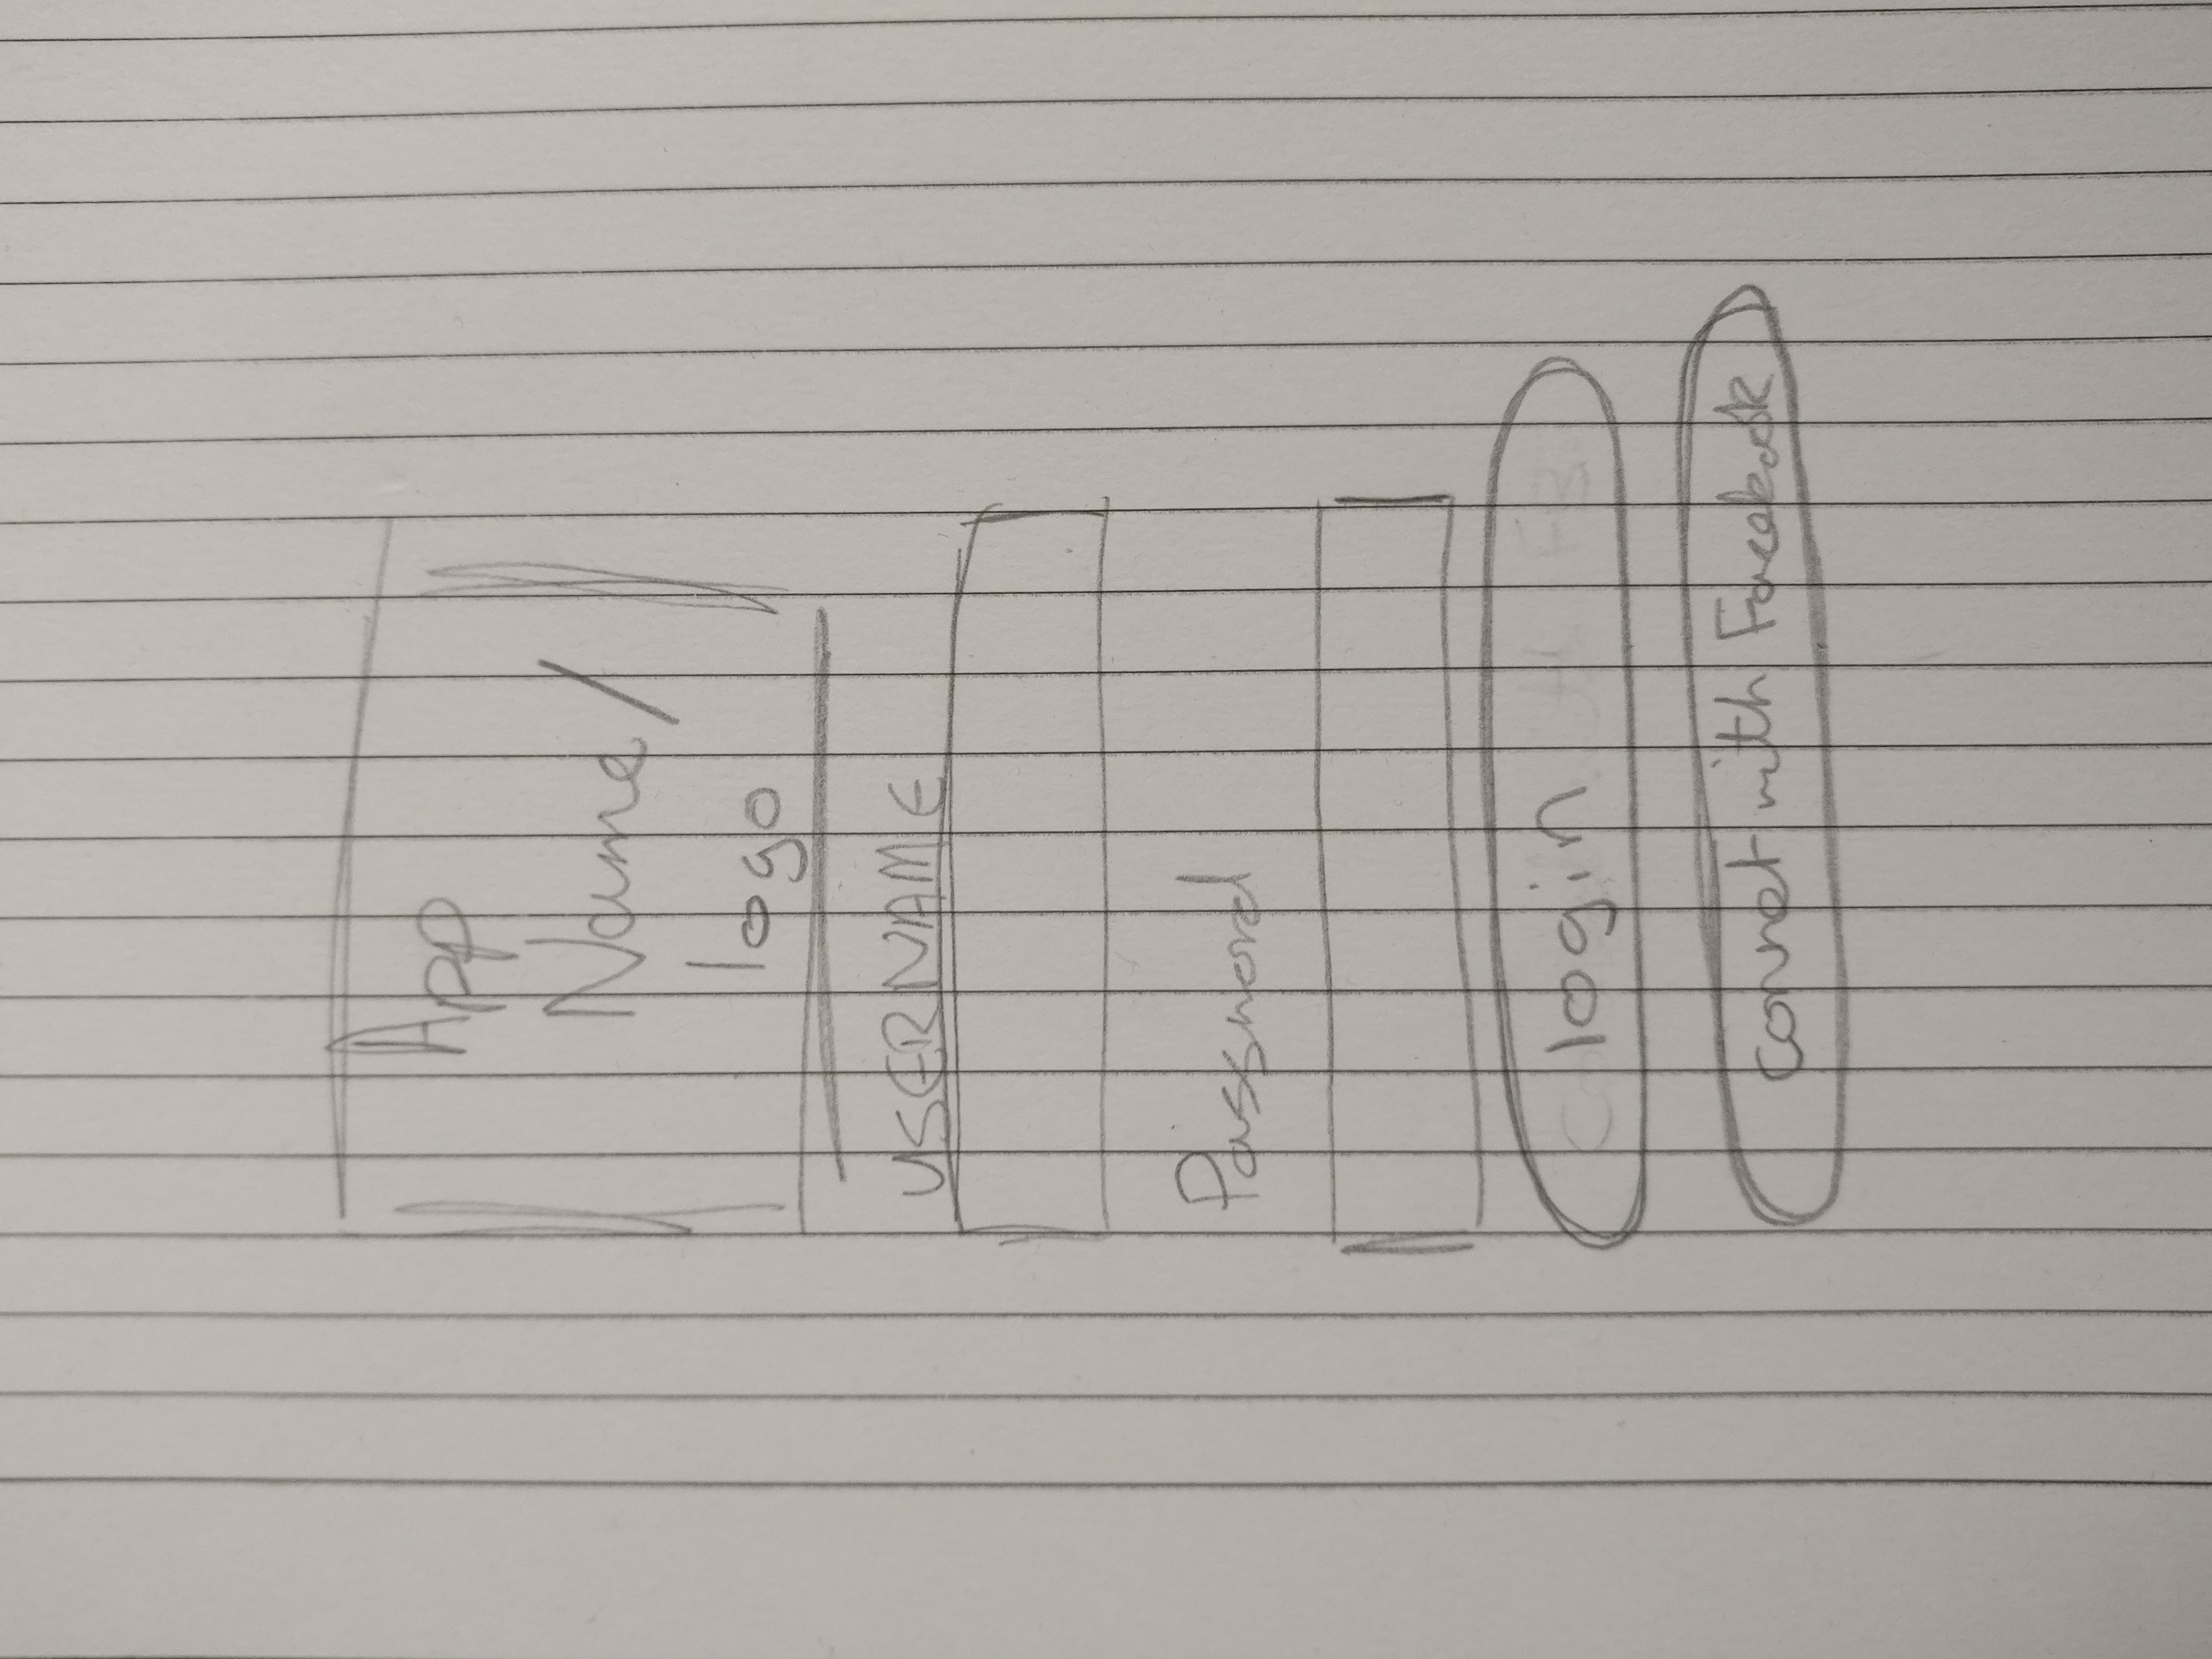 App
Name /
logo
USERNAME
Password
login
connet with Facebook